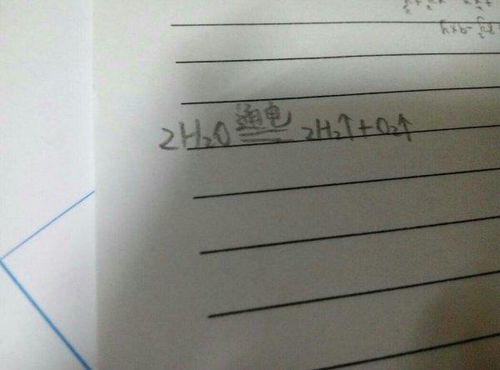 2H₂O 通电══ 2H₂↑+O₂↑